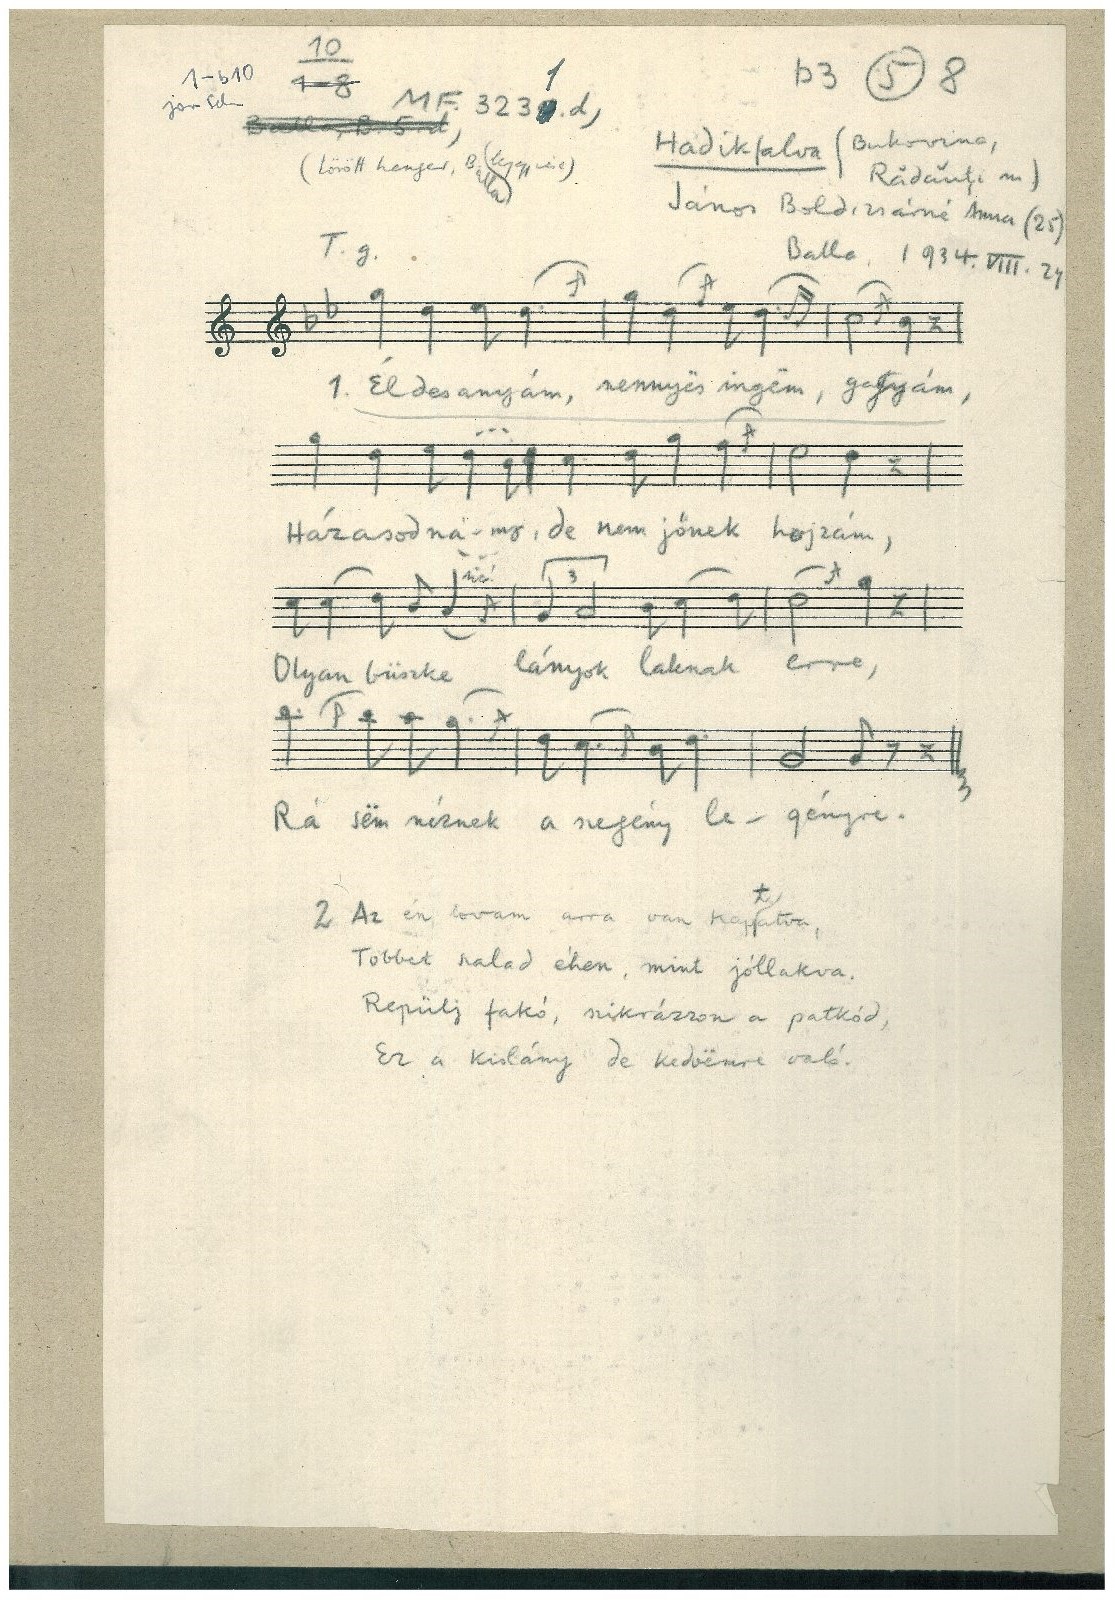 10
1-b10
1-8
b3 5 8
MF. 3231.d,
Balla, B. 5. d,
(törött henger, Balla
Hadikfalva (Bukovina,
Rădăuţi m)
János Boldizsárné Anna (25)
T. g.
Balla, 1934. VIII. 24
1. Éldesanyám, szennyës ingëm, gatyám,
Házasodná-my, de nem jőnek hozzám,
sic!
3
Olyan büszke lányok laknak erre,
Rá sëm néznek a szegény le- gényre.
3
2 Az én lovam arra van kaptatva,
Többet szalad éhen, mint jóllakva.
Repülj fakó, szikrázzon a patkód,
Ez a kislány de kedvëmre való.